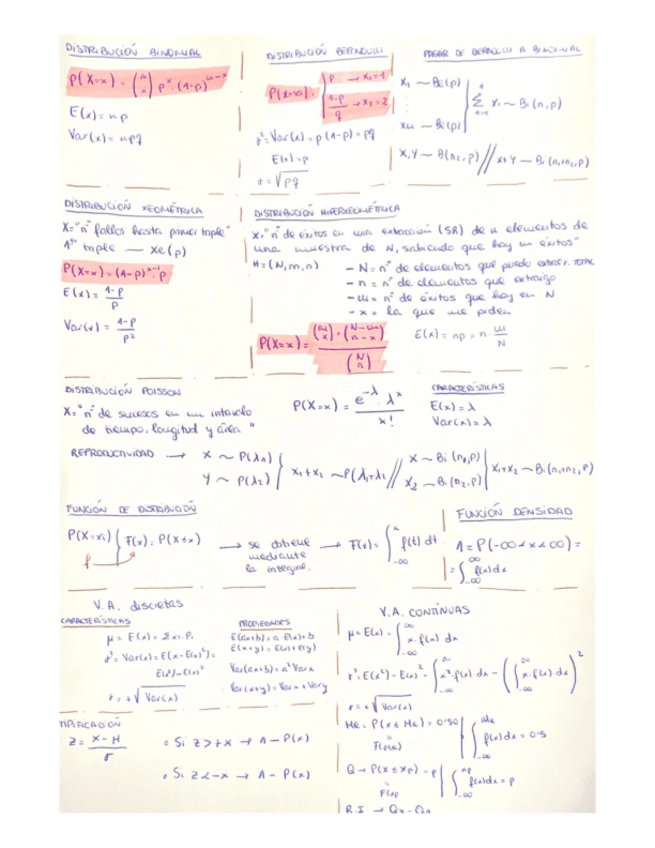 DISTRIBUCIÓN BINOMIAL
P(X=x) = (n x) p^x · (1-p)^(n-x)
E(x) = np
Var(x) = npq
DISTRIBUCIÓN BERNOULLI
P(X=xi) = { p → x1=1
1-p / q → x2=2
σ² = Var(x) = p(1-p) = pq
E(x) = p
σ = √pq
PASAR DE BERNOULLI A BINOMIAL
x1 ~ Be(p)
xn ~ Be(p) } Σ xi ~ Bi(n,p)
X,Y ~ B(n2,p) // x+y ~ Bi(n1+n2,p)
DISTRIBUCIÓN GEOMÉTRICA
X="nº fallos hasta primer triple"
1er triple — Xe(p)
P(X=x) = (1-p)^(x-1) · p
E(x) = 1-p / p
Var(x) = 1-p / p²
DISTRIBUCIÓN HIPERGEOMÉTRICA
X="nº de éxitos en una extracción (SR) de n elementos de
una muestra de N, sabiendo que hay m éxitos"
H=(N,m,n)
- N = nº de elementos que puedo extraer. TOTAL
- n = nº de elementos que extraigo
- m = nº de éxitos que hay en N
- x = la que me piden
P(X=x) = (m x) · (N-m n-x) / (N n)
E(x) = np = n m/N
DISTRIBUCIÓN POISSON
X="nº de sucesos en un intervalo
de tiempo, longitud y área"
P(X=x) = e^-λ · λ^x / x!
CARACTERÍSTICAS
E(x) = λ
Var(x) = λ
REPRODUCTIVIDAD → X ~ P(λ1)
Y ~ P(λ2) } x1+x2 ~ P(λ1+λ2 // X ~ Bi(n1,p)
x2 ~ Bi(n2,p) } x1+x2 ~ Bi(n1+n2,p)
FUNCIÓN DE DISTRIBUCIÓN
P(X=xi) { F(x) = P(X≤x)
→ se obtiene
mediante
la integral.
→ F(x) = ∫ f(t) dt
-∞
FUNCIÓN DENSIDAD
1 = P(-∞<x<∞) =
= ∫ f(x)dx
V.A. discretas
CARACTERÍSTICAS
μ = E(x) = Σxi·Pi
σ² = Var(x) = E(x-E(x)²) =
E(x²)-E(x)²
σ = +√Var(x)
PROPIEDADES
E(ax+b) = a·E(x)+b
E(x+y) = E(x)+E(y)
Var(ax+b) = a²Varx
Var(x+y) = Varx + Vary
V.A. CONTÍNUAS
μ = E(x) = ∫ x·f(x) dx
σ² = E(x²) - E(x)² = ∫ x²·f(x)·dx - (∫ x·f(x)·dx)²
σ = +√Var(x)
Me = P(x≤Me) = 0'50 | ∫ f(x)dx = 0'5
F(Me)
Q → P(X≤xp) = p | ∫ f(x)dx = p
F(xp
R.I → Q3-Q1
TIPIFICACIÓN
Z = X-μ / σ
∘ Si Z>+x → 1-P(x)
∘ Si Z<-x → 1-P(x)